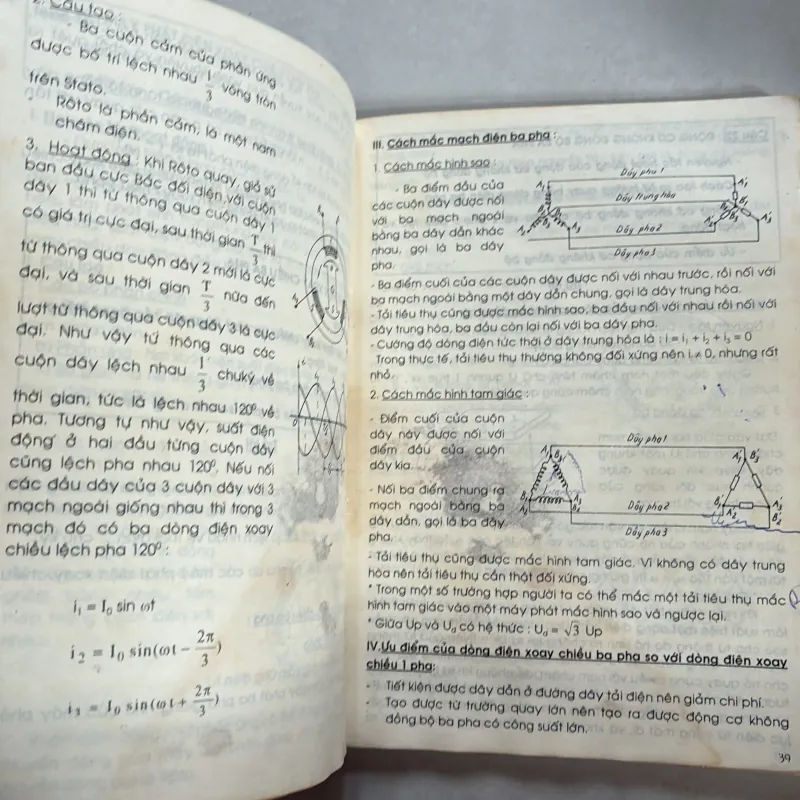 2. Cấu tạo :
- Ba cuộn cảm của phần ứng
được bố trí lệch nhau 1/3 vòng tròn
trên Stato.
- Rôto là phần cảm, là một nam
châm điện.
3. Hoạt động : Khi Rôto quay, giả sử
ban đầu cực Bắc đối diện với cuộn
dây 1 thì từ thông qua cuộn dây 1
có giá trị cực đại, sau thời gian T/3 thì
từ thông qua cuộn dây 2 mới là cực
đại, và sau thời gian T/3 nữa đến
lượt từ thông qua cuộn dây 3 là cực
đại. Như vậy từ thông qua các
cuộn dây lệch nhau 1/3 chu kỳ về
thời gian, tức là lệch nhau 120⁰ về
pha. Tương tự như vậy, suất điện
động ở hai đầu từng cuộn dây
cũng lệch pha nhau 120⁰. Nếu nối
các đầu dây của 3 cuộn dây với 3
mạch ngoài giống nhau thì trong 3
mạch đó có ba dòng điện xoay
chiều lệch pha 120⁰ :
i₁ = I₀ sin ωt
i₂ = I₀ sin(ωt − 2π/3)
i₃ = I₀ sin(ωt + 2π/3)
III. Cách mắc mạch điện ba pha :
1. Cách mắc hình sao :
- Ba điểm đầu của
các cuộn dây được nối
với ba mạch ngoài
bằng ba dây dẫn khác
nhau, gọi là ba dây
pha.
A₁ Dây pha 1 A'₁
Dây trung hòa
Dây pha 2
Dây pha 3
- Ba điểm cuối của các cuộn dây được nối với nhau trước, rồi nối với
ba mạch ngoài bằng một dây dẫn chung, gọi là dây trung hòa.
- Tải tiêu thụ cũng được mắc hình sao, ba đầu nối với nhau rồi nối với
dây trung hòa, ba đầu còn lại nối với ba dây pha.
- Cường độ dòng điện tức thời ở dây trung hòa là : i = i₁ + i₂ + i₃ = 0
Trong thực tế, tải tiêu thụ thường không đối xứng nên i ≠ 0, nhưng rất
nhỏ.
2. Cách mắc hình tam giác :
- Điểm cuối của cuộn
dây này được nối với
điểm đầu của cuộn
dây kia.
- Nối ba điểm chung ra
mạch ngoài bằng ba
dây dẫn, gọi là ba dây
pha.
Dây pha 1
Dây pha 2
Dây pha 3
- Tải tiêu thụ cũng được mắc hình tam giác. Vì không có dây trung
hòa nên tải tiêu thụ cần thật đối xứng.
* Trong một số trường hợp người ta có thể mắc một tải tiêu thụ mắc
hình tam giác vào một máy phát mắc hình sao và ngược lại.
* Giữa Up và U_d có hệ thức : U_d = √3 Up
IV. Ưu điểm của dòng điện xoay chiều ba pha so với dòng điện xoay
chiều 1 pha:
- Tiết kiện được dây dẫn ở đường dây tải điện nên giảm chi phí.
- Tạo được từ trường quay lớn nên tạo ra được động cơ không
đồng bộ ba pha có công suất lớn.
39